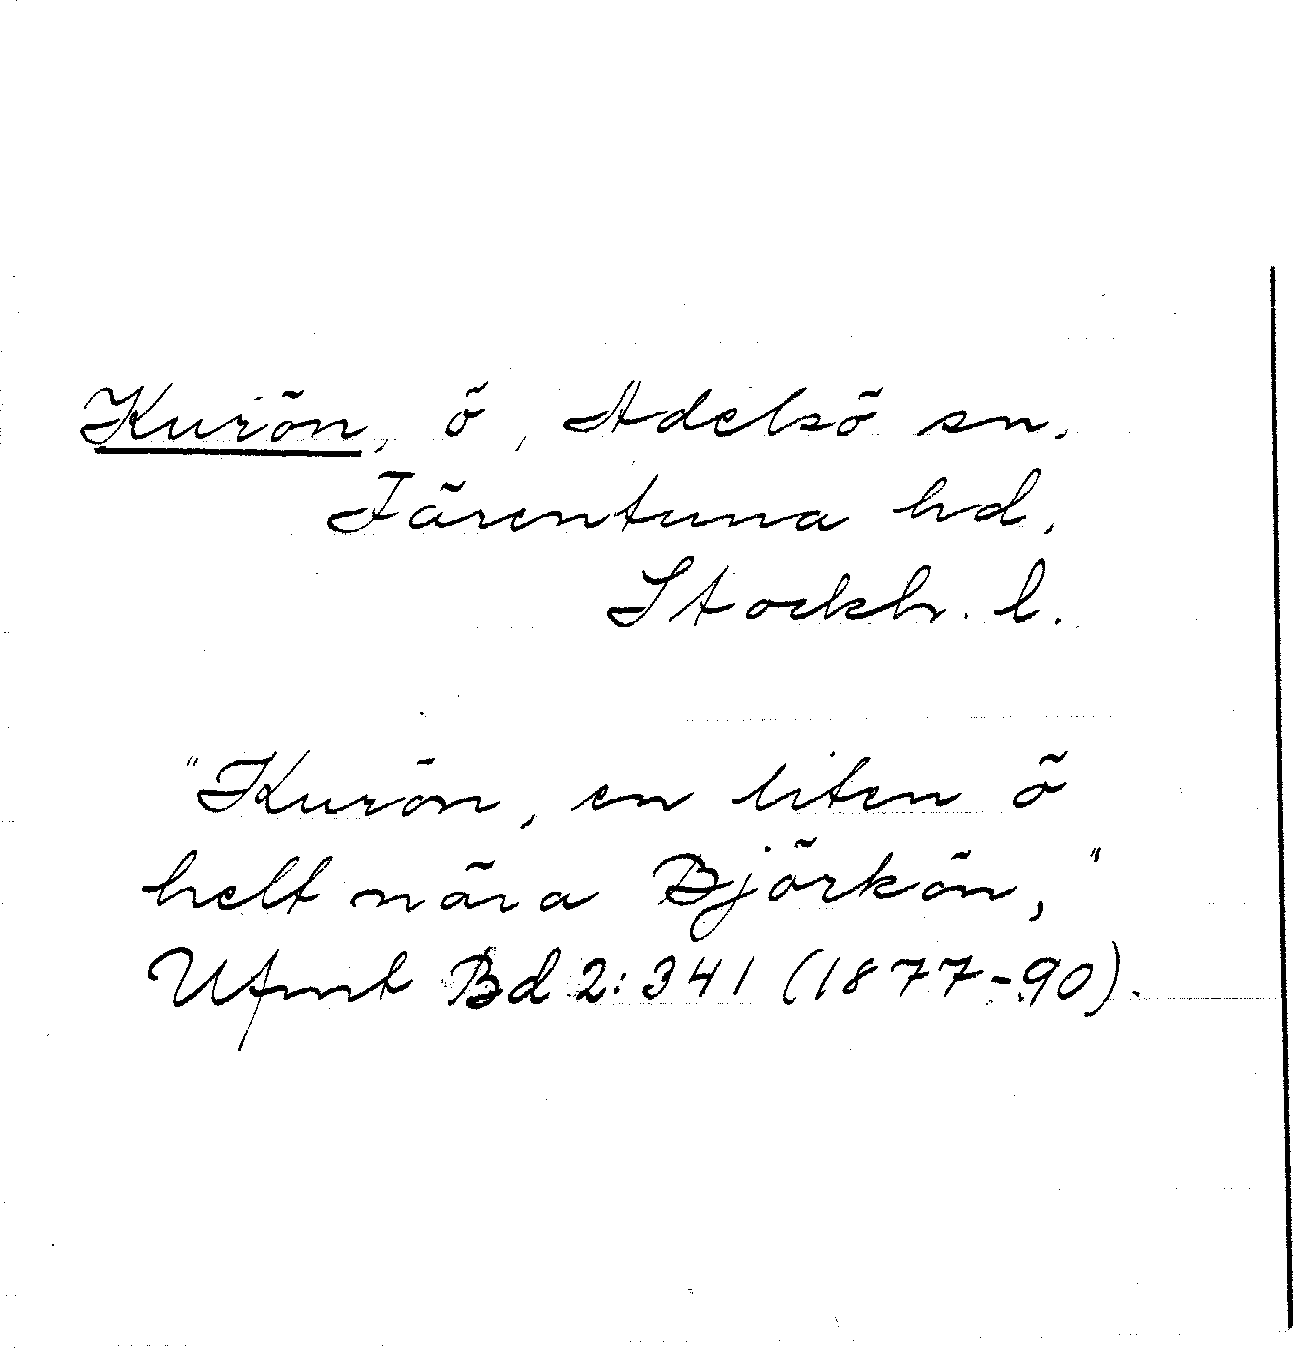 Kurön, ö, Adelsö sn.
Färentuna hd,
Stockh. l.
"Kurön, en liten ö
helt nära Björkön,"
Ufmt Bd 2:341 (1877-90).